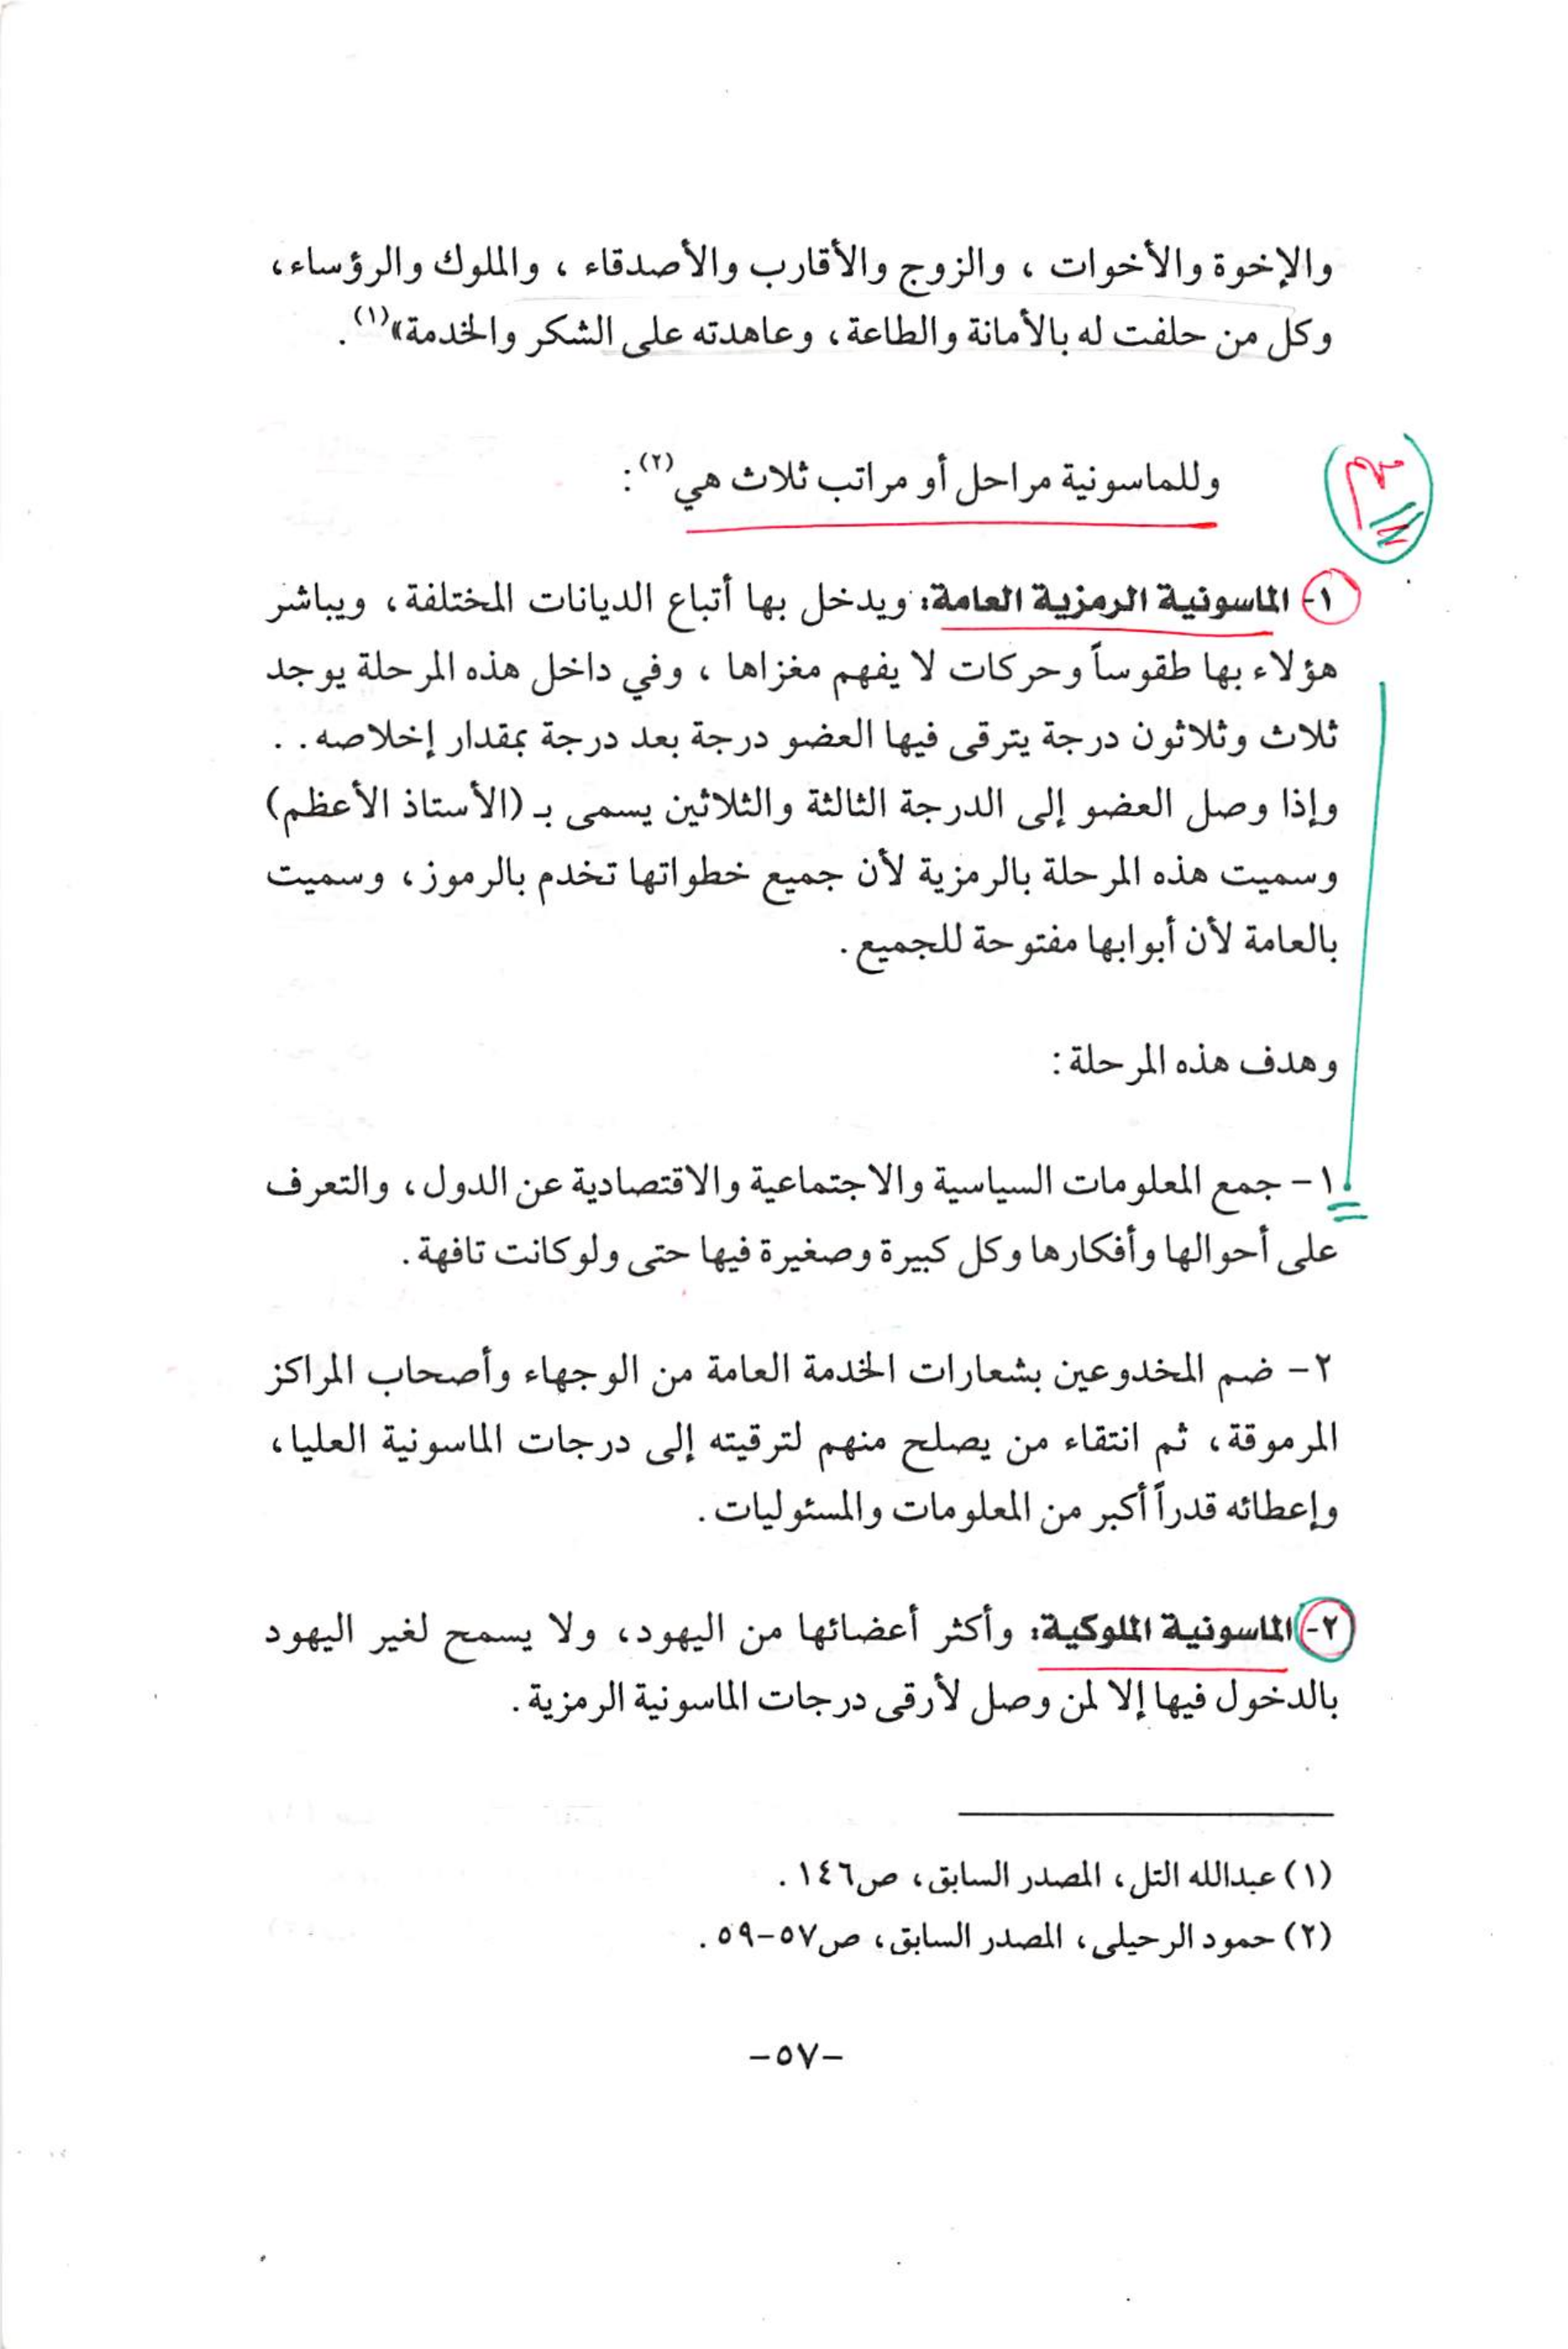 والإخوة والأخوات ، والزوج والأقارب والأصدقاء ، والملوك والرؤساء،
وكل من حلفت له بالأمانة والطاعة، وعاهدته على الشكر والخدمة»(١) .
وللماسونية مراحل أو مراتب ثلاث هي(٢):
١- الماسونية الرمزية العامة: ويدخل بها أتباع الديانات المختلفة، ويباشر
هؤلاء بها طقوساً وحركات لا يفهم مغزاها ، وفي داخل هذه المرحلة يوجد
ثلاث وثلاثون درجة يترقى فيها العضو درجة بعد درجة بمقدار إخلاصه . .
وإذا وصل العضو إلى الدرجة الثالثة والثلاثين يسمى بـ (الأستاذ الأعظم)
وسميت هذه المرحلة بالرمزية لأن جميع خطواتها تخدم بالرموز، وسميت
بالعامة لأن أبوابها مفتوحة للجميع.
وهدف هذه المرحلة:
١- جمع المعلومات السياسية والاجتماعية والاقتصادية عن الدول، والتعرف
على أحوالها وأفكارها وكل كبيرة وصغيرة فيها حتى ولو كانت تافهة.
٢- ضم المخدوعين بشعارات الخدمة العامة من الوجهاء وأصحاب المراكز
المرموقة، ثم انتقاء من يصلح منهم لترقيته إلى درجات الماسونية العليا،
وإعطائه قدراً أكبر من المعلومات والمسئوليات.
٢- الماسونية الملوكية: وأكثر أعضائها من اليهود، ولا يسمح لغير اليهود
بالدخول فيها إلا لمن وصل لأرقى درجات الماسونية الرمزية.
(١) عبدالله التل، المصدر السابق، ص١٤٦ .
(٢) حمود الرحيلي، المصدر السابق، ص٥٧-٥٩ .
-٥٧-